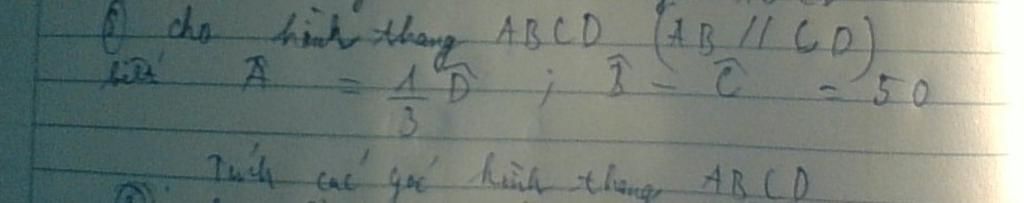 cho hình thang ABCD (AB // CD)
biết Â = 1/3 D̂ ; B̂ - Ĉ = 50
Tính các góc hình thang ABCD